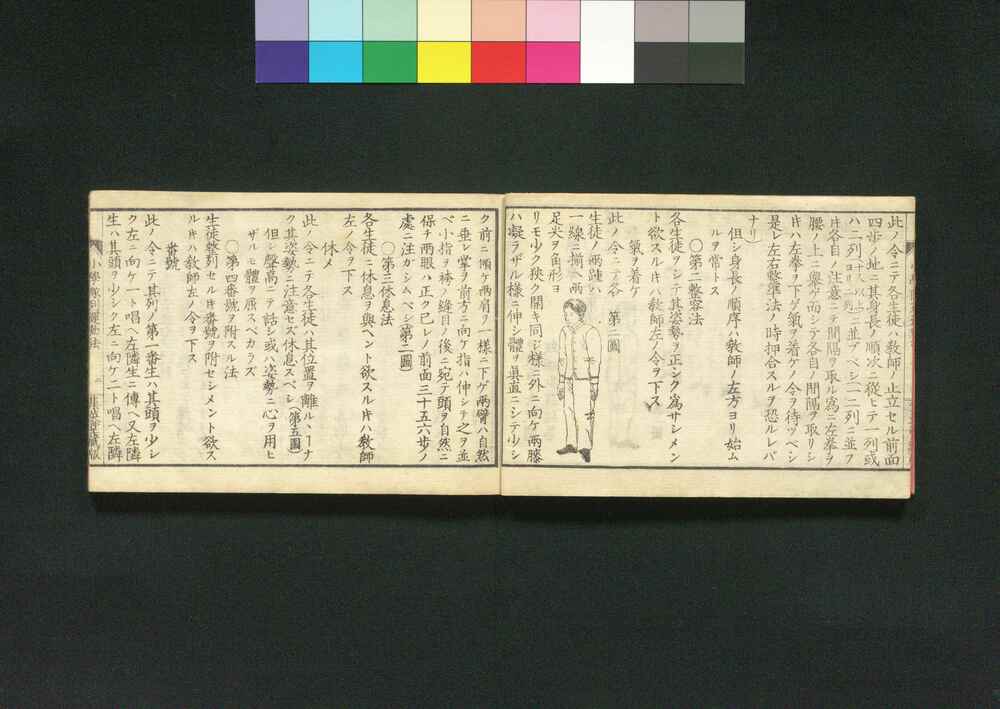 此ノ令ニテ各生徒ハ教師ノ止立セル前面
四歩ノ地ニ其身長ノ順次ニ從ヒテ一列或
ハ二列(十人以上並ブベシ)ニ二列ニ並フ
ḱ各自ノ注意ニテ間隔ヲ取ル為ニ左拳ヲ
腰ノ上ニ與ヘ而シテ各自ノ間隔ヲ取リシ
ḱハ左拳ヲ下ゲ氣ヲ着ケノ令ヲ待ツベシ
是レ左右整頓法ノ時押合スルヲ恐ルレバ
ナリ
但シ身長ノ順序ハ教師ノ左方ヨリ始ム
ルヲ常トス
〇第二整容法
各生徒ヲシテ其姿勢ヲ正シク為サシメン
ト欲スルḱハ教師左ノ令ヲ下ス
氣ヲ着ケ
此ノ令ニテ各
生徒ノ兩踵ハ
一線ニ揃ヘ兩
足尖ヲ角形ヨ
リモ少ク狹ク開キ同ジ様ニ外ニ向ケ兩膝
ハ凝ラザル様ニ伸シ體ヲ眞直ニシテ少シ
第二圖
ク前ニ傾ケ兩肩ヲ一様ニ下ゲ兩臂ハ自然
ニ垂レ掌ヲ前方ニ向ケ指ハ伸シテ之ヲ並
ベ小指ヲ袴ノ縫目ノ後ニ宛テ頭ヲ自然ニ
保チ兩眼ハ正ク己レノ前面三十五六歩ノ
處ニ注ガシムベシ(第二圖)
〇第三休息法
各生徒ニ休息ヲ與ヘント欲スルḱハ教師
左ノ令ヲ下ス
休メ
此ノ令ニテ各生徒ハ其位置ヲ離ルヽーナ
ク其姿勢ニ注意セズ休息スベシ(第五圖)
但シ聲高ニテ話シ或ハ姿勢ニ心ヲ用ヒ
ザルモ體ヲ屈スベカラズ
〇第四番號ヲ附スル法
生徒整列セルḱ番號ヲ附セシメント欲ス
ルḱハ教師左ノ令ヲ下ス
番號
此ノ令ニテ其列ノ第一番生ハ其頭ヲ少シ
ク左ニ向ケ一ト唱ヘ左隣生ニ傳ヘ又左隣
生ハ其頭ヲ少シク左ニ向ケ二ト唱ヘ左隣